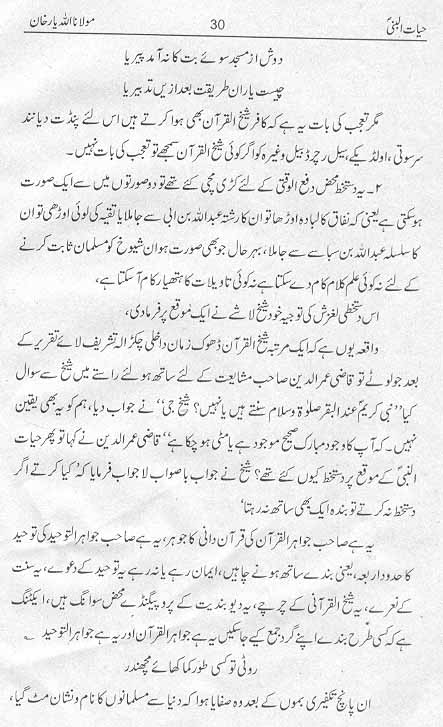 حیات النبیؐ 30 مولانا اللہ یار خان
دوش از مسجد سوئے بت کانہ آمد پیر یا
چیست یاران طریقت بعد ازیں تدبیر یا
مگر تعجب کی بات یہ ہے کہ کافر شیخ القرآن بھی ہوا کرتے ہیں اس لئے پنڈت دیا نند
سرسوتی، اولڈیکے، سیل رچرڈ بیل وغیرہ کو اگر کوئی شیخ القرآن سمجھے تو تعجب کی بات نہیں۔
۲۔ یہ دستخط محض دفع الوقتی کے لئے کڑی مچی کئے تھے تو دو صورتوں میں سے ایک صورت
ہو سکتی ہے یعنی کہ نفاق کا لبادہ اوڑھا تو ان کا رشتہ عبداللہ بن ابی سے جا ملا یا تقیہ کی لوئی اوڑھی تو ان
کا سلسلہ عبداللہ بن سبا سے جا ملا، بہر حال جو بھی صورت ہو ان شیوخ کو مسلمان ثابت کرنے
کے لئے نہ کوئی علم کلام کام دے سکتا ہے نہ کوئی تاویلات کا ہتھیار کام آ سکتا ہے،
اس دستخطی لغزش کی توجیہ خود شیخ لاشے نے ایک موقع پر فرمادی،
واقعہ یوں ہے کہ ایک مرتبہ شیخ القرآن ڈھوک زمان داخلی چکڑالہ تشریف لائے تقریر کے
بعد جو لوٹے تو قاضی عمر الدین صاحب مشایعت کے لئے ساتھ ہو لئے راستے میں شیخ سے سوال
کیا ”نبی کریمؐ عند البقر صلوٰۃ وسلام سنتے ہیں یا نہیں؟ شیخ جی“ نے جواب دیا، ہم کو یہ بھی یقین
نہیں۔ کہ آپ کا وجود مبارک صحیح موجود ہے یا مٹی ہو چکا ہے“ قاضی عمر الدین نے کہا تو پھر حیات
النبیؐ کے موقع پر دستخط کیوں کئے تھے؟ شیخ نے جواب باصواب لاجواب فرمایا کہ ’کیا کرتے اگر
دستخط نہ کرتے تو بندہ ایک بھی ساتھ نہ رہتا‘
یہ ہے صاحب جواہر القرآن کی قرآن دانی کا جوہر، یہ ہے صاحب جواہر التوحید کی توحید
کا حدود اربعہ، یعنی بندے ساتھ ہونے چاہیں، ایمان رہے یا نہ رہے یہ توحید کے دعوے، یہ سنت
کے نعرے، یہ شیخ القرآنی کے چرچے، یہ دیوبندیت کے پروپیگنڈے محض سوانگ ہیں، ایکٹنگ
ہے کہ کسی طرح بندے اپنے گرد جمع کیے جا سکیں یہ ہے جواہر القرآن اور یہ ہے جواہر التوحید
روٹی تو کسی طور کما کھائے مچھندر
ان پانچ تکفیری بموں کے بعد وہ صفایا ہوا کہ دنیا سے مسلمانوں کا نام و نشان مٹ گیا،